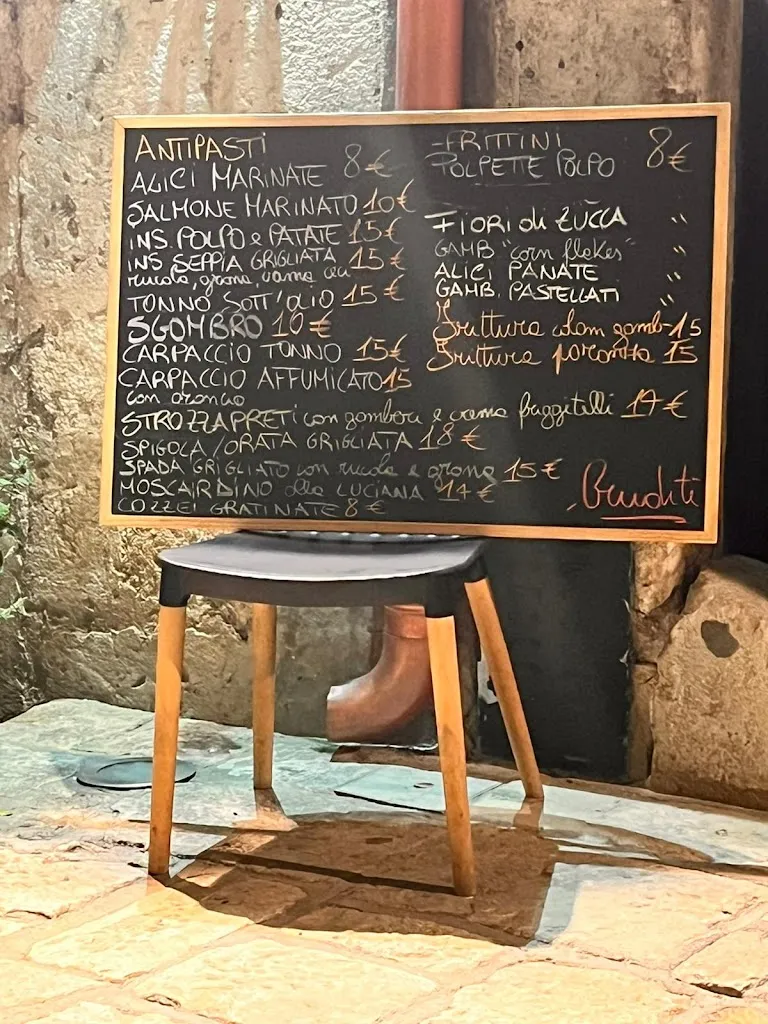 ANTIPASTI
ALICI MARINATE 8€
SALMONE MARINATO 10€
INS. POLPO e PATATE 15€
INS SEPPIA GRIGLIATA 15€
rucola, grana, crema
TONNO SOTT'OLIO 15€
SGOMBRO 10€
CARPACCIO TONNO 15€
CARPACCIO AFFUMICATO 15
con arancio
STROZZAPRETI con gamberi e crema friggitelli 17€
SPIGOLA / ORATA GRIGLIATA 18€
SPADA GRIGLIATO con rucola e grana 15€
MOSCARDINO alla LUCIANA 14€
COZZE GRATINATE 8€
-FRITTINI
POLPETTE POLPO 8€
FIORI di ZUCCA "
GAMB "corn flakes"
ALICI PANATE "
GAMB. PASTELLATI "
Frittura calam gamb-15
Frittura paranza 15